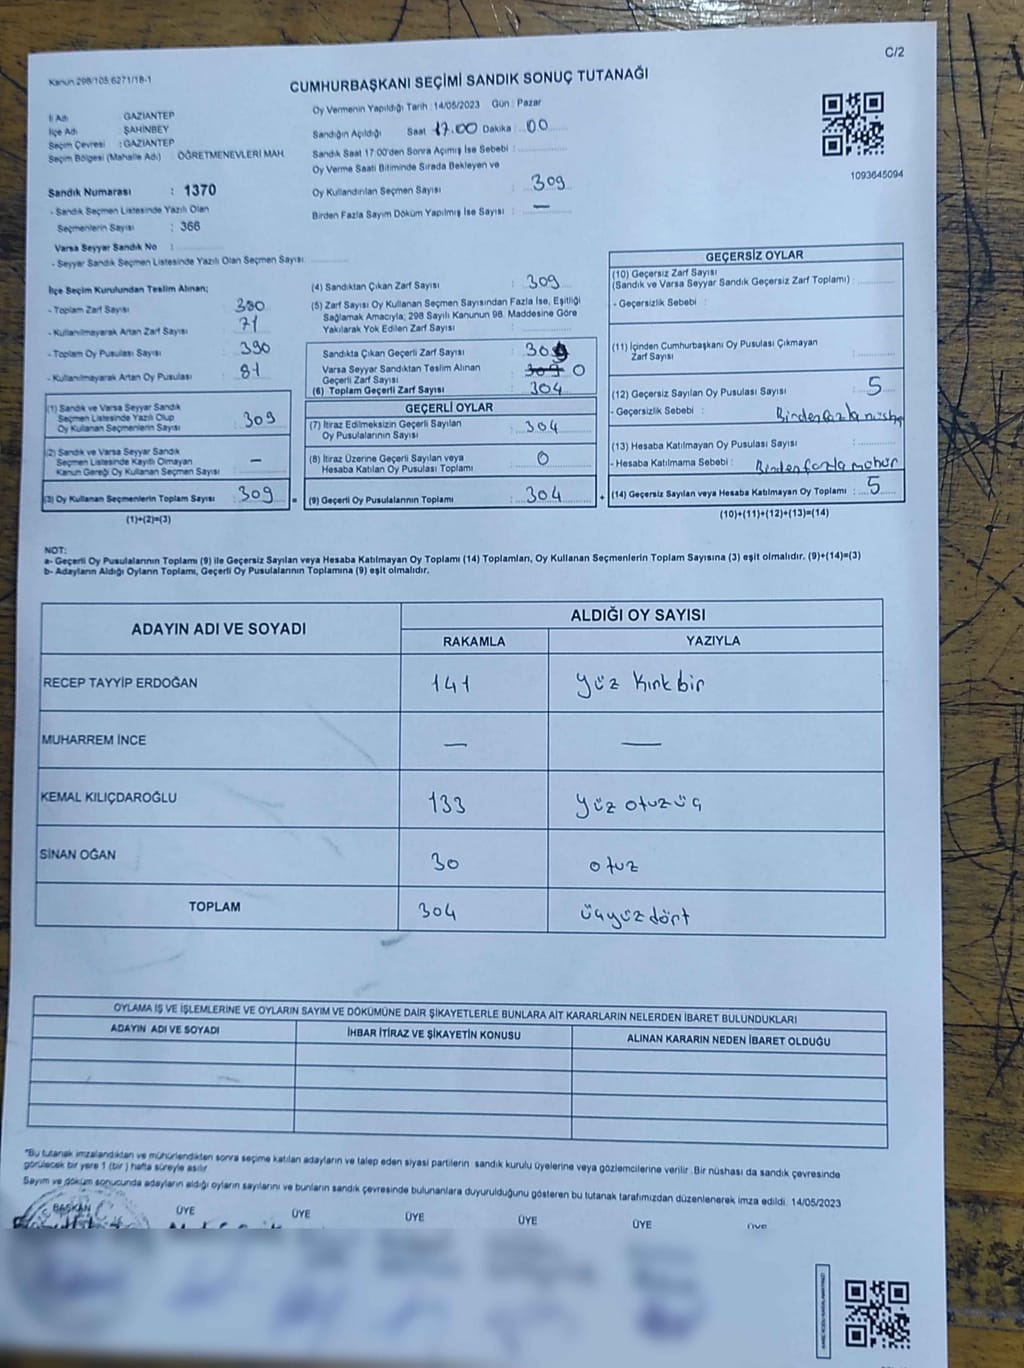 C/2
Kanun:298/105:6271/18-1
CUMHURBAŞKANI SEÇİMİ SANDIK SONUÇ TUTANAĞI
İl Adı : GAZİANTEP
İlçe Adı : ŞAHİNBEY
Seçim Çevresi : GAZİANTEP
Seçim Bölgesi (Mahalle Adı) : ÖĞRETMENEVLERİ MAH.
Sandık Numarası : 1370
- Sandık Seçmen Listesinde Yazılı Olan
Seçmenlerin Sayısı : 366
Varsa Seyyar Sandık No :
- Seyyar Sandık Seçmen Listesinde Yazılı Olan Seçmen Sayısı:
Oy Vermenin Yapıldığı Tarih : 14/05/2023 Gün : Pazar
Sandığın Açıldığı Saat 17.00 Dakika : 00
Sandık Saat 17:00'den Sonra Açımış İse Sebebi :
Oy Verme Saati Bitiminde Sırada Bekleyen ve
Oy Kullandırılan Seçmen Sayısı : 309
Birden Fazla Sayım Döküm Yapılmış İse Sayısı : —
1093645094
İlçe Seçim Kurulundan Teslim Alınan;
- Toplam Zarf Sayısı : 380
- Kullanılmayarak Artan Zarf Sayısı : 71
- Toplam Oy Pusulası Sayısı : 390
- Kullanılmayarak Artan Oy Pusulası : 81
(1) Sandık ve Varsa Seyyar Sandık
Seçmen Listesinde Yazılı Olup
Oy Kullanan Seçmenlerin Sayısı : 309
(2) Sandık ve Varsa Seyyar Sandık
Seçmen Listesinde Kayıtlı Olmayan
Kanun Gereği Oy Kullanan Seçmen Sayısı : —
(3) Oy Kullanan Seçmenlerin Toplam Sayısı : 309 =
(1)+(2)=(3)
(4) Sandıktan Çıkan Zarf Sayısı : 309
(5) Zarf Sayısı Oy Kullanan Seçmen Sayısından Fazla İse, Eşitliği
Sağlamak Amacıyla; 298 Sayılı Kanunun 98. Maddesine Göre
Yakılarak Yok Edilen Zarf Sayısı :
Sandıkta Çıkan Geçerli Zarf Sayısı : 309
Varsa Seyyar Sandıktan Teslim Alınan
Geçerli Zarf Sayısı : 309 0
(6) Toplam Geçerli Zarf Sayısı : 304
GEÇERLİ OYLAR
(7) İtiraz Edilmeksizin Geçerli Sayılan
Oy Pusulalarının Sayısı : 304
(8) İtiraz Üzerine Geçerli Sayılan veya
Hesaba Katılan Oy Pusulası Toplamı : 0
(9) Geçerli Oy Pusulalarının Toplamı : 304 +
GEÇERSİZ OYLAR
(10) Geçersiz Zarf Sayısı
(Sandık ve Varsa Seyyar Sandık Geçersiz Zarf Toplamı) :
- Geçersizlik Sebebi :
(11) İçinden Cumhurbaşkanı Oy Pusulası Çıkmayan
Zarf Sayısı :
(12) Geçersiz Sayılan Oy Pusulası Sayısı : 5
- Geçersizlik Sebebi :
(13) Hesaba Katılmayan Oy Pusulası Sayısı :
- Hesaba Katılmama Sebebi : Birden fazla mühür
(14) Geçersiz Sayılan veya Hesaba Katılmayan Oy Toplamı : 5
(10)+(11)+(12)+(13)=(14)
NOT:
a- Geçerli Oy Pusulalarının Toplamı (9) ile Geçersiz Sayılan veya Hesaba Katılmayan Oy Toplamı (14) Toplamları, Oy Kullanan Seçmenlerin Toplam Sayısına (3) eşit olmalıdır. (9)+(14)=(3)
b- Adayların Aldığı Oyların Toplamı, Geçerli Oy Pusulalarının Toplamına (9) eşit olmalıdır.
ADAYIN ADI VE SOYADI
ALDIĞI OY SAYISI
RAKAMLA YAZIYLA
RECEP TAYYİP ERDOĞAN 141 Yüz Kırk bir
MUHARREM İNCE — —
KEMAL KILIÇDAROĞLU 133 Yüz otuz üç
SİNAN OĞAN 30 otuz
TOPLAM 304 üçyüz dört
OYLAMA İŞ VE İŞLEMLERİNE VE OYLARIN SAYIM VE DÖKÜMÜNE DAİR ŞİKAYETLERLE BUNLARA AİT KARARLARIN NELERDEN İBARET BULUNDUKLARI
ADAYIN ADI VE SOYADI İHBAR İTİRAZ VE ŞİKAYETİN KONUSU ALINAN KARARIN NEDEN İBARET OLDUĞU
*Bu tutanak imzalandıktan ve mühürlendikten sonra seçime katılan adayların ve talep eden siyasi partilerin sandık kurulu üyelerine veya gözlemcilerine verilir. Bir nüshası da sandık çevresinde
görülecek bir yere 1 (bir) hafta süreyle asılır.
Sayım ve döküm sonucunda adayların aldığı oyların sayılarını ve bunların sandık çevresinde bulunanlara duyurulduğunu gösteren bu tutanak tarafımızdan düzenlenerek imza edildi. 14/05/2023
BAŞKAN ÜYE ÜYE ÜYE ÜYE ÜYE ÜYE